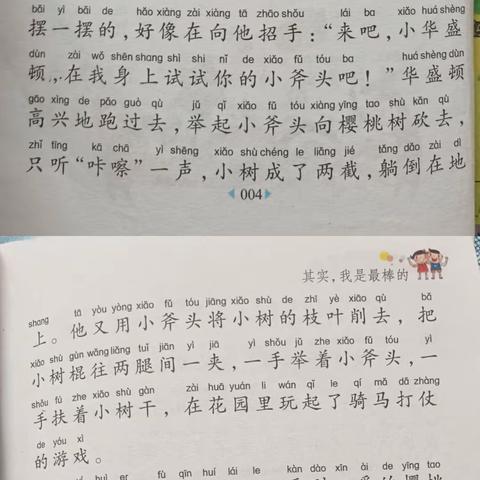 bǎi yì bǎi de hǎo xiàng zài xiàng tā zhāo shǒu lái ba xiǎo huá shèng
摆一摆的，好像在向他招手：“来吧，小华盛
dùn zài wǒ shēn shang shì shi nǐ de xiǎo fǔ tóu ba huá shèng dùn
顿，在我身上试试你的小斧头吧！”华盛顿
gāo xìng de pǎo guò qù jǔ qǐ xiǎo fǔ tóu xiàng yīng tao shù kǎn qù
高兴地跑过去，举起小斧头向樱桃树砍去，
zhǐ tīng kā chā yì shēng xiǎo shù chéng le liǎng jié tǎng dǎo zài dì
只听“咔嚓”一声，小树成了两截，躺倒在地
004
其实，我是最棒的
shang tā yòu yòng xiǎo fǔ tóu jiāng xiǎo shù de zhī yè xiāo qù bǎ
上。他又用小斧头将小树的枝叶削去，把
xiǎo shù gùn wǎng liǎng tuǐ jiān yì jiā yì shǒu jǔ zhe xiǎo fǔ tóu yì
小树棍往两腿间一夹，一手举着小斧头，一
shǒu fú zhe xiǎo shù gàn zài huā yuán li wán qǐ le qí mǎ dǎ zhàng
手扶着小树干，在花园里玩起了骑马打仗
de yóu xì
的游戏。
huì er fù qīn huí lái le kàn dào xīn ài de yīng tao